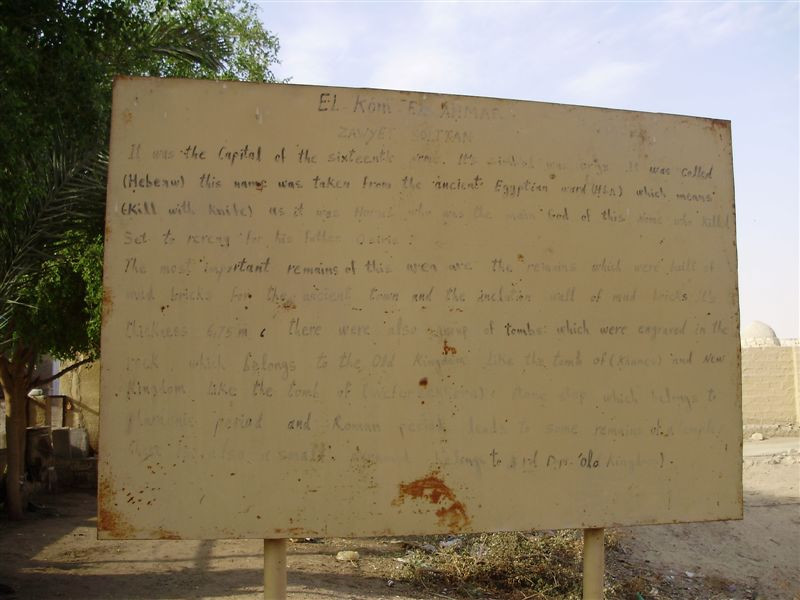 EL KOM EL AHMAR
ZAWYET SOLTAN
It was the Capital of the sixteenth nome. It's simbol was oryx. It was called
(Hebenw) this name was taken from the ancient Egyptian word (Hbn) which means
(Kill with Knife) as it was who was the main God of this Nome who Killed
Set to for his father Osiris.
The most important remains of this area are the remains which were built of
mud bricks for the ancient town and the wall of mud bricks It's
thickness 6.75 m, there were also of tombs which were engraved in the
rock, which belongs to the Old Kingdom like the tomb of and New
Kingdom like the tomb of stone which belongs to
period and Roman period, leads to some remains of
also a small belongs to 3 rd Kingdom).